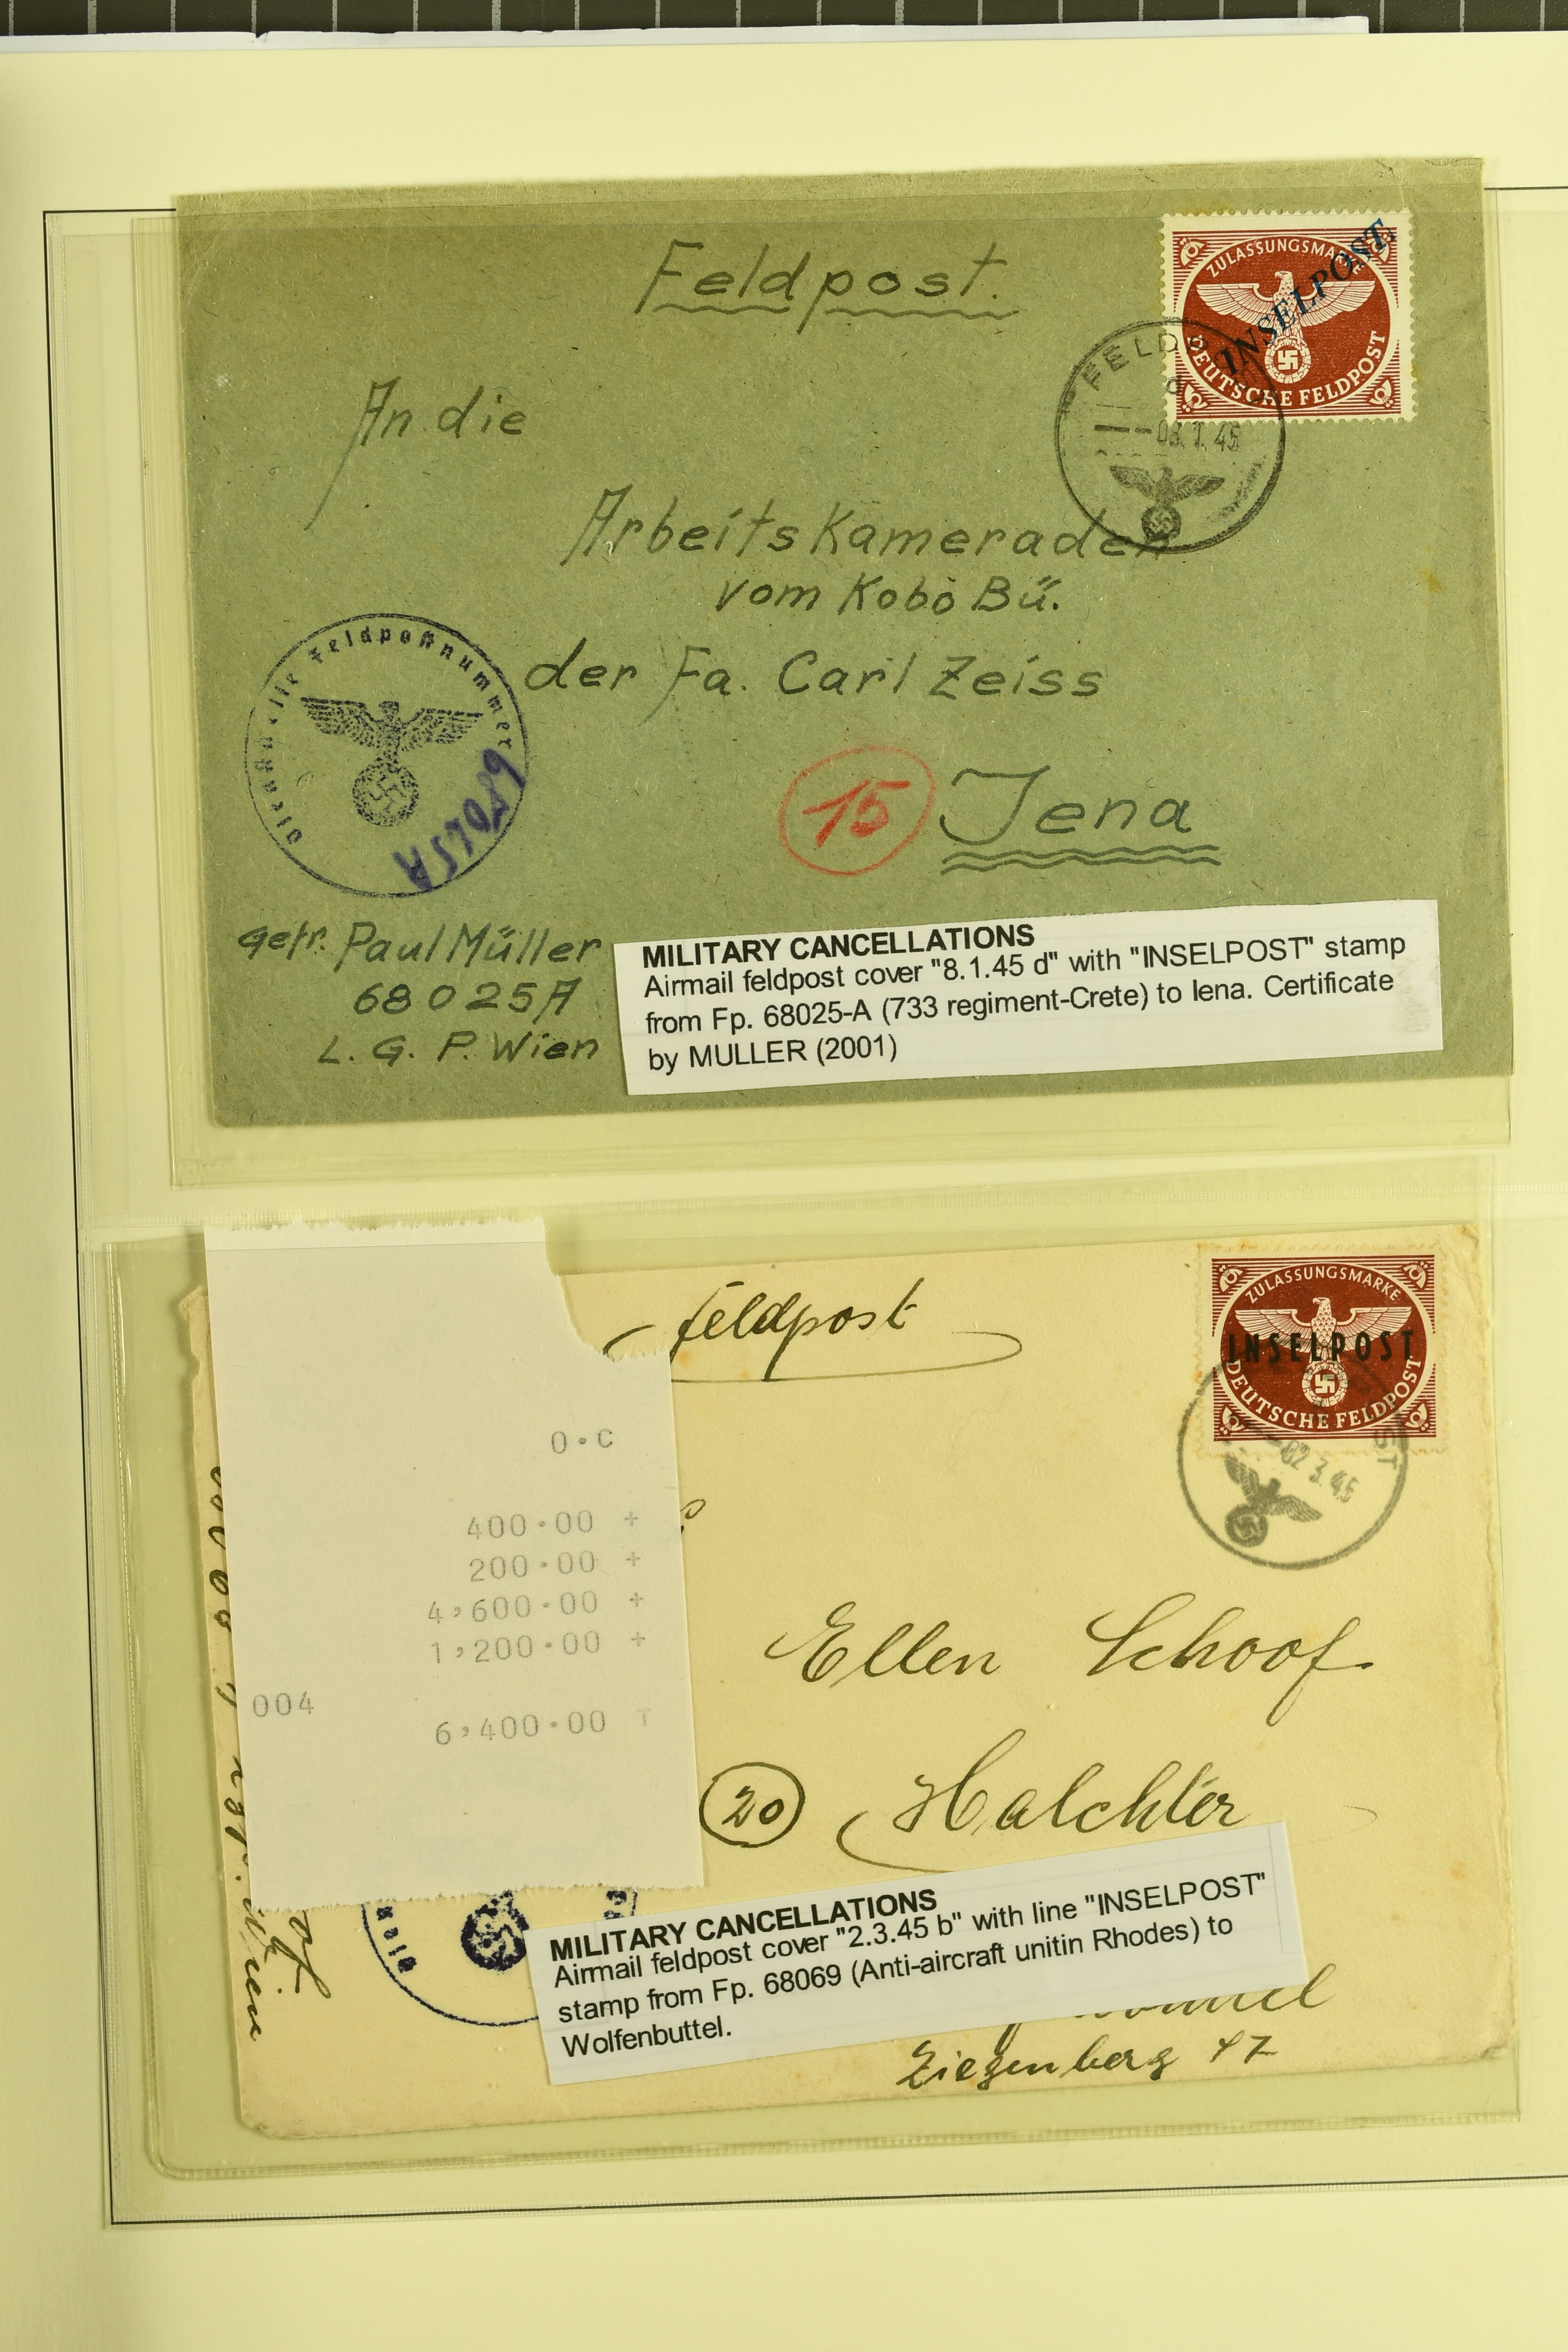 Feldpost.
ZULASSUNGSMARKE
INSELPOST.
DEUTSCHE FELDPOST
FELDP
d
08.1.45
An die
Arbeitskameraden
vom Kobö Bü.
der Fa. Carl Zeiss
15 Jena
Feldpostnummer
68025A
gefr. Paul Müller
68025A
L. G. P. Wien
MILITARY CANCELLATIONS
Airmail feldpost cover "8.1.45 d" with "INSELPOST" stamp
from Fp. 68025-A (733 regiment-Crete) to Iena. Certificate
by MULLER (2001)
feldpost
ZULASSUNGSMARKE
INSELPOST
DEUTSCHE FELDPOST
ST
02.3.45
0·C
400·00 +
200·00 +
4,600·00 +
1,200·00 +
004
6,400·00 T
Ellen Schoof
20 Halchter
Wien
MILITARY CANCELLATIONS
Airmail feldpost cover "2.3.45 b" with line "INSELPOST"
stamp from Fp. 68069 (Anti-aircraft unitin Rhodes) to
Wolfenbuttel.
Ziegenberg 47